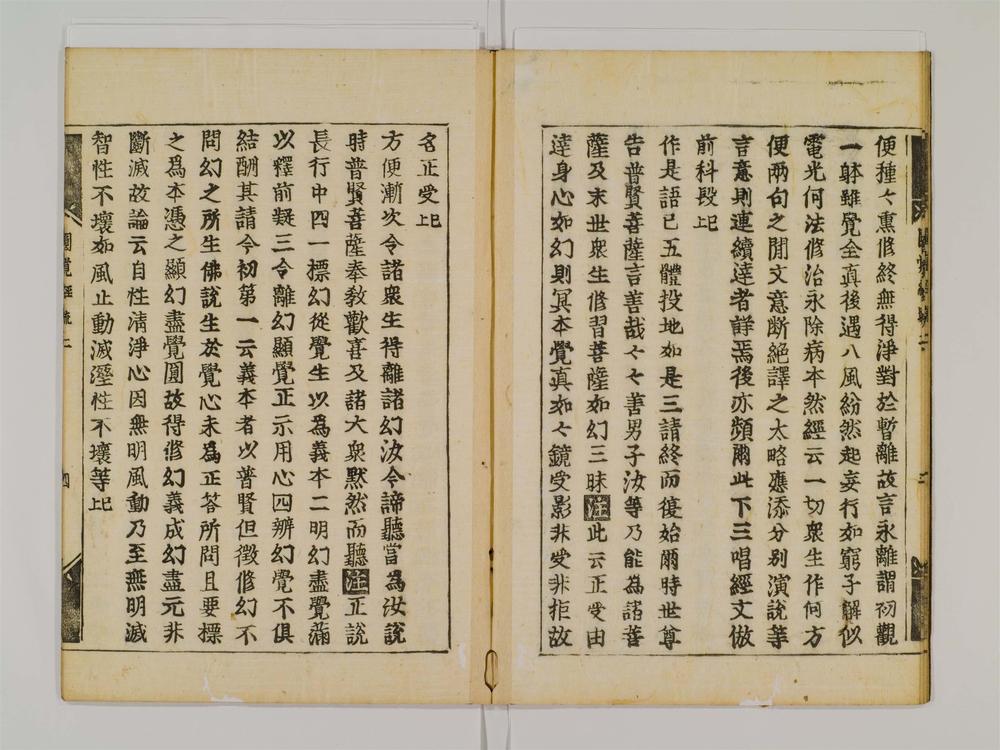 便種々熏修終無得淨對於暫離故言永離謂初觀
一躰雖覺全真後遇八風紛然起妄行如窮子解似
電光何法修治永除病本然經云一切衆生作何方
便兩句之間文意断絶譯之太略應添分別演說等
言意則連續達者詳焉後亦頻爾此下三唱經文倣
前科段也
作是語已五體投地如是三請終而復始爾時世尊
告普賢菩薩言善哉々々善男子汝等乃能為諸菩
薩及末世衆生修習菩薩如幻三昧注此云正受由
達身心如幻則冥本覺真如々鏡受影非受非拒故
名正受也
方便漸次令諸衆生得離諸幻汝今諦聽當為汝說
時普賢菩薩奉教歡喜及諸大衆默然而聽注正說
長行中四一標幻從覺生以為義本二明幻盡覺滿
以釋前疑三令離幻顯覺正示用心四辨幻覺不俱
結酬其請今初第一云義本者以普賢但徵修幻不
問幻之所生佛說生於覺心未為正答所問且要標
之爲本憑之顯幻盡覺圓故得修幻義成幻盡元非
斷滅故論云自性清淨心因無明風動乃至無明滅
智性不壞如風止動滅溼性不壞等也
圓覺經疏二
四